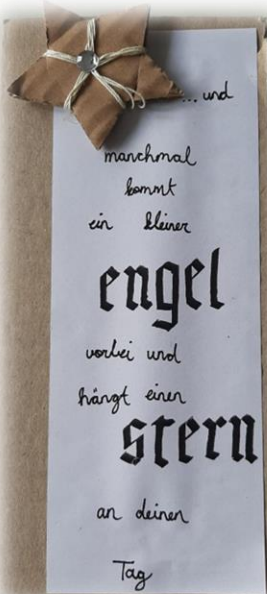 ... und
manchmal
kommt
ein kleiner
engel
vorbei und
hängt einen
stern
an deinen
Tag